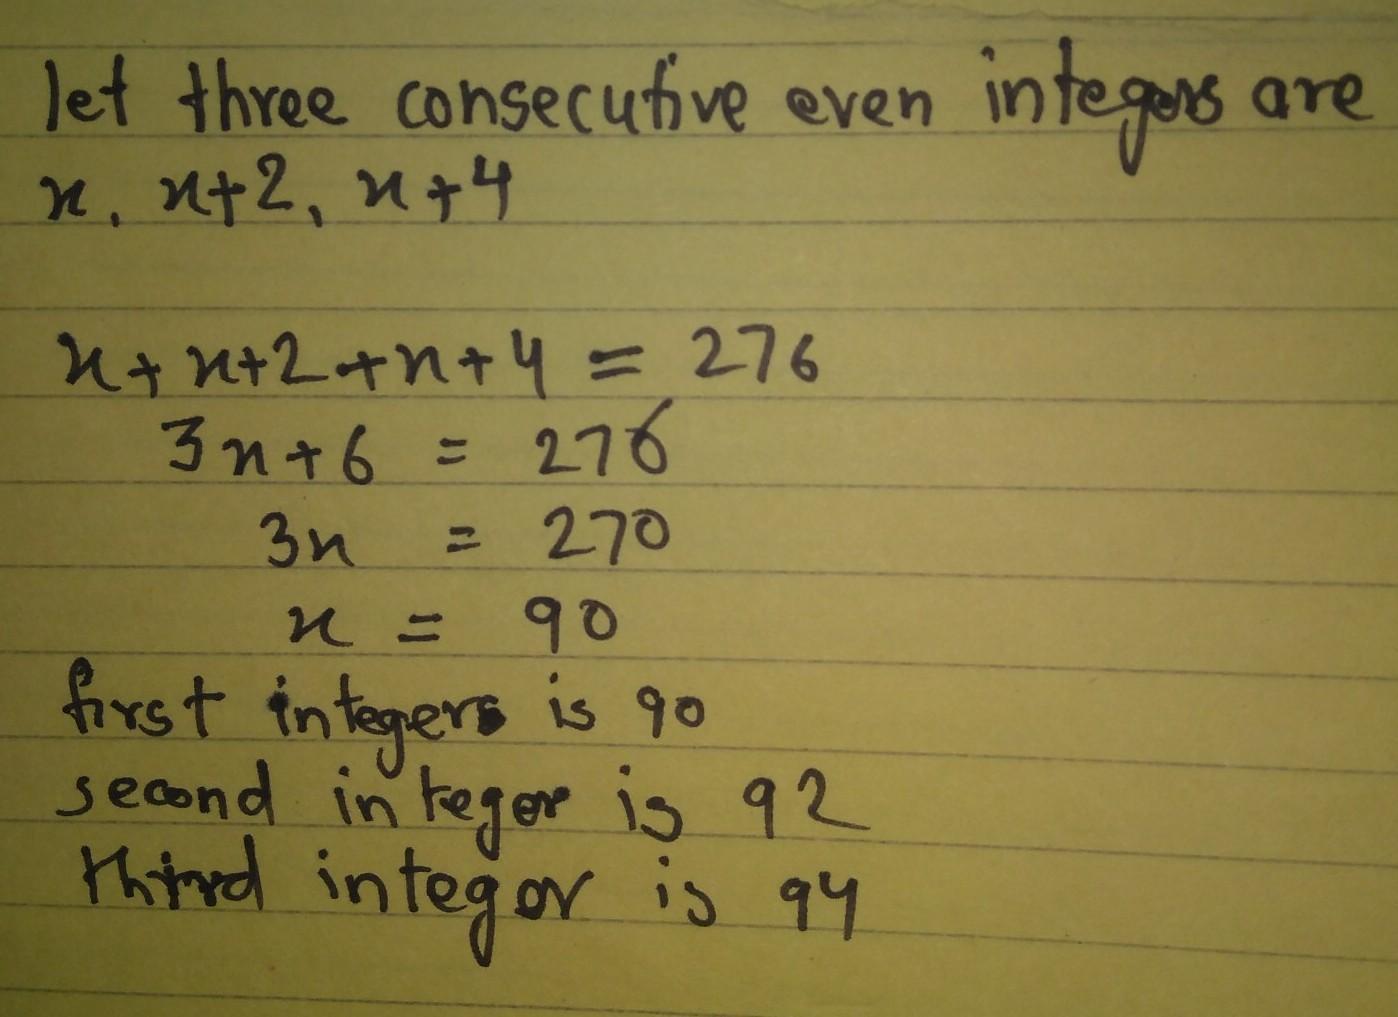 let three consecutive even integers are
x, x+2, x+4
x+x+2+x+4 = 276
3x+6 = 276
3x = 270
x = 90
first integers is 90
second integer is 92
third integer is 94